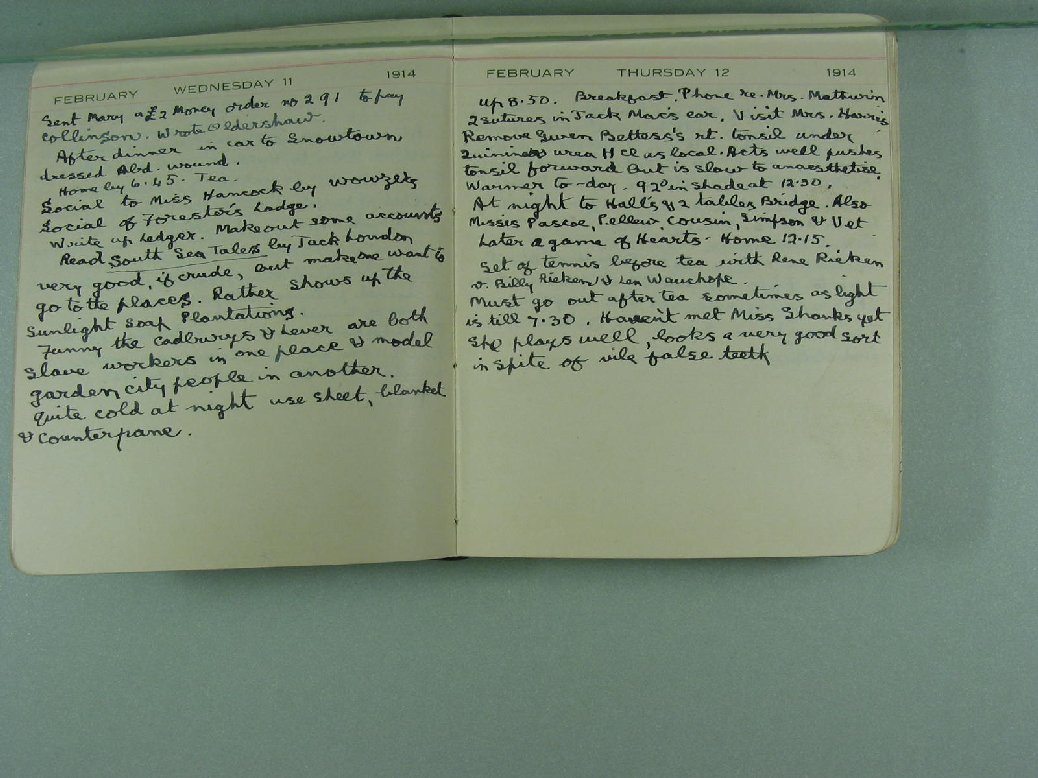 FEBRUARY WEDNESDAY 11 1914
Sent Mary a £2 Money order no 291 to pay
Collinson. Wrote Oldershaw.
After dinner in car to Snowtown
dressed Abd. wound.
Home by 6.45. Tea.
Social to Miss Hancock by wowzers
Social of Forester's Lodge.
Write up Ledger. Make out some accounts
Read South Sea Tales by Jack London
very good, if crude, but make one want to
go to the places. Rather shows up the
Sunlight Soap Plantations.
Funny the Cadburys & Lever are both
slave workers in one place & model
garden city people in another.
Quite cold at night use sheet, blanket
& counterpane.
FEBRUARY THURSDAY 12 1914
Up 8.50. Breakfast. Phone re. Mrs. Mathwin
2 sutures in Jack Mac's ear. Visit Mrs. Harris
Remove Gwen Bettess's rt. tonsil under
Quinine urea HCl as local. Acts well pushes
tonsil forward but is slow to anaesthetise.
Warmer to-day. 92° in shade at 12.30.
At night to Hall's & 2 tables Bridge. Also
Misses Pascoe, Pellew, Cousin, Simpson & Vet
Later a game of Hearts. Home 12.15.
Set of tennis before tea with Rene Rieken
v. Billy Rieken & Len Wauchope.
Must go out after tea sometimes as light
is till 7.30. Haven't met Miss Shanks yet
She plays well, looks a very good sort
in spite of vile false teeth